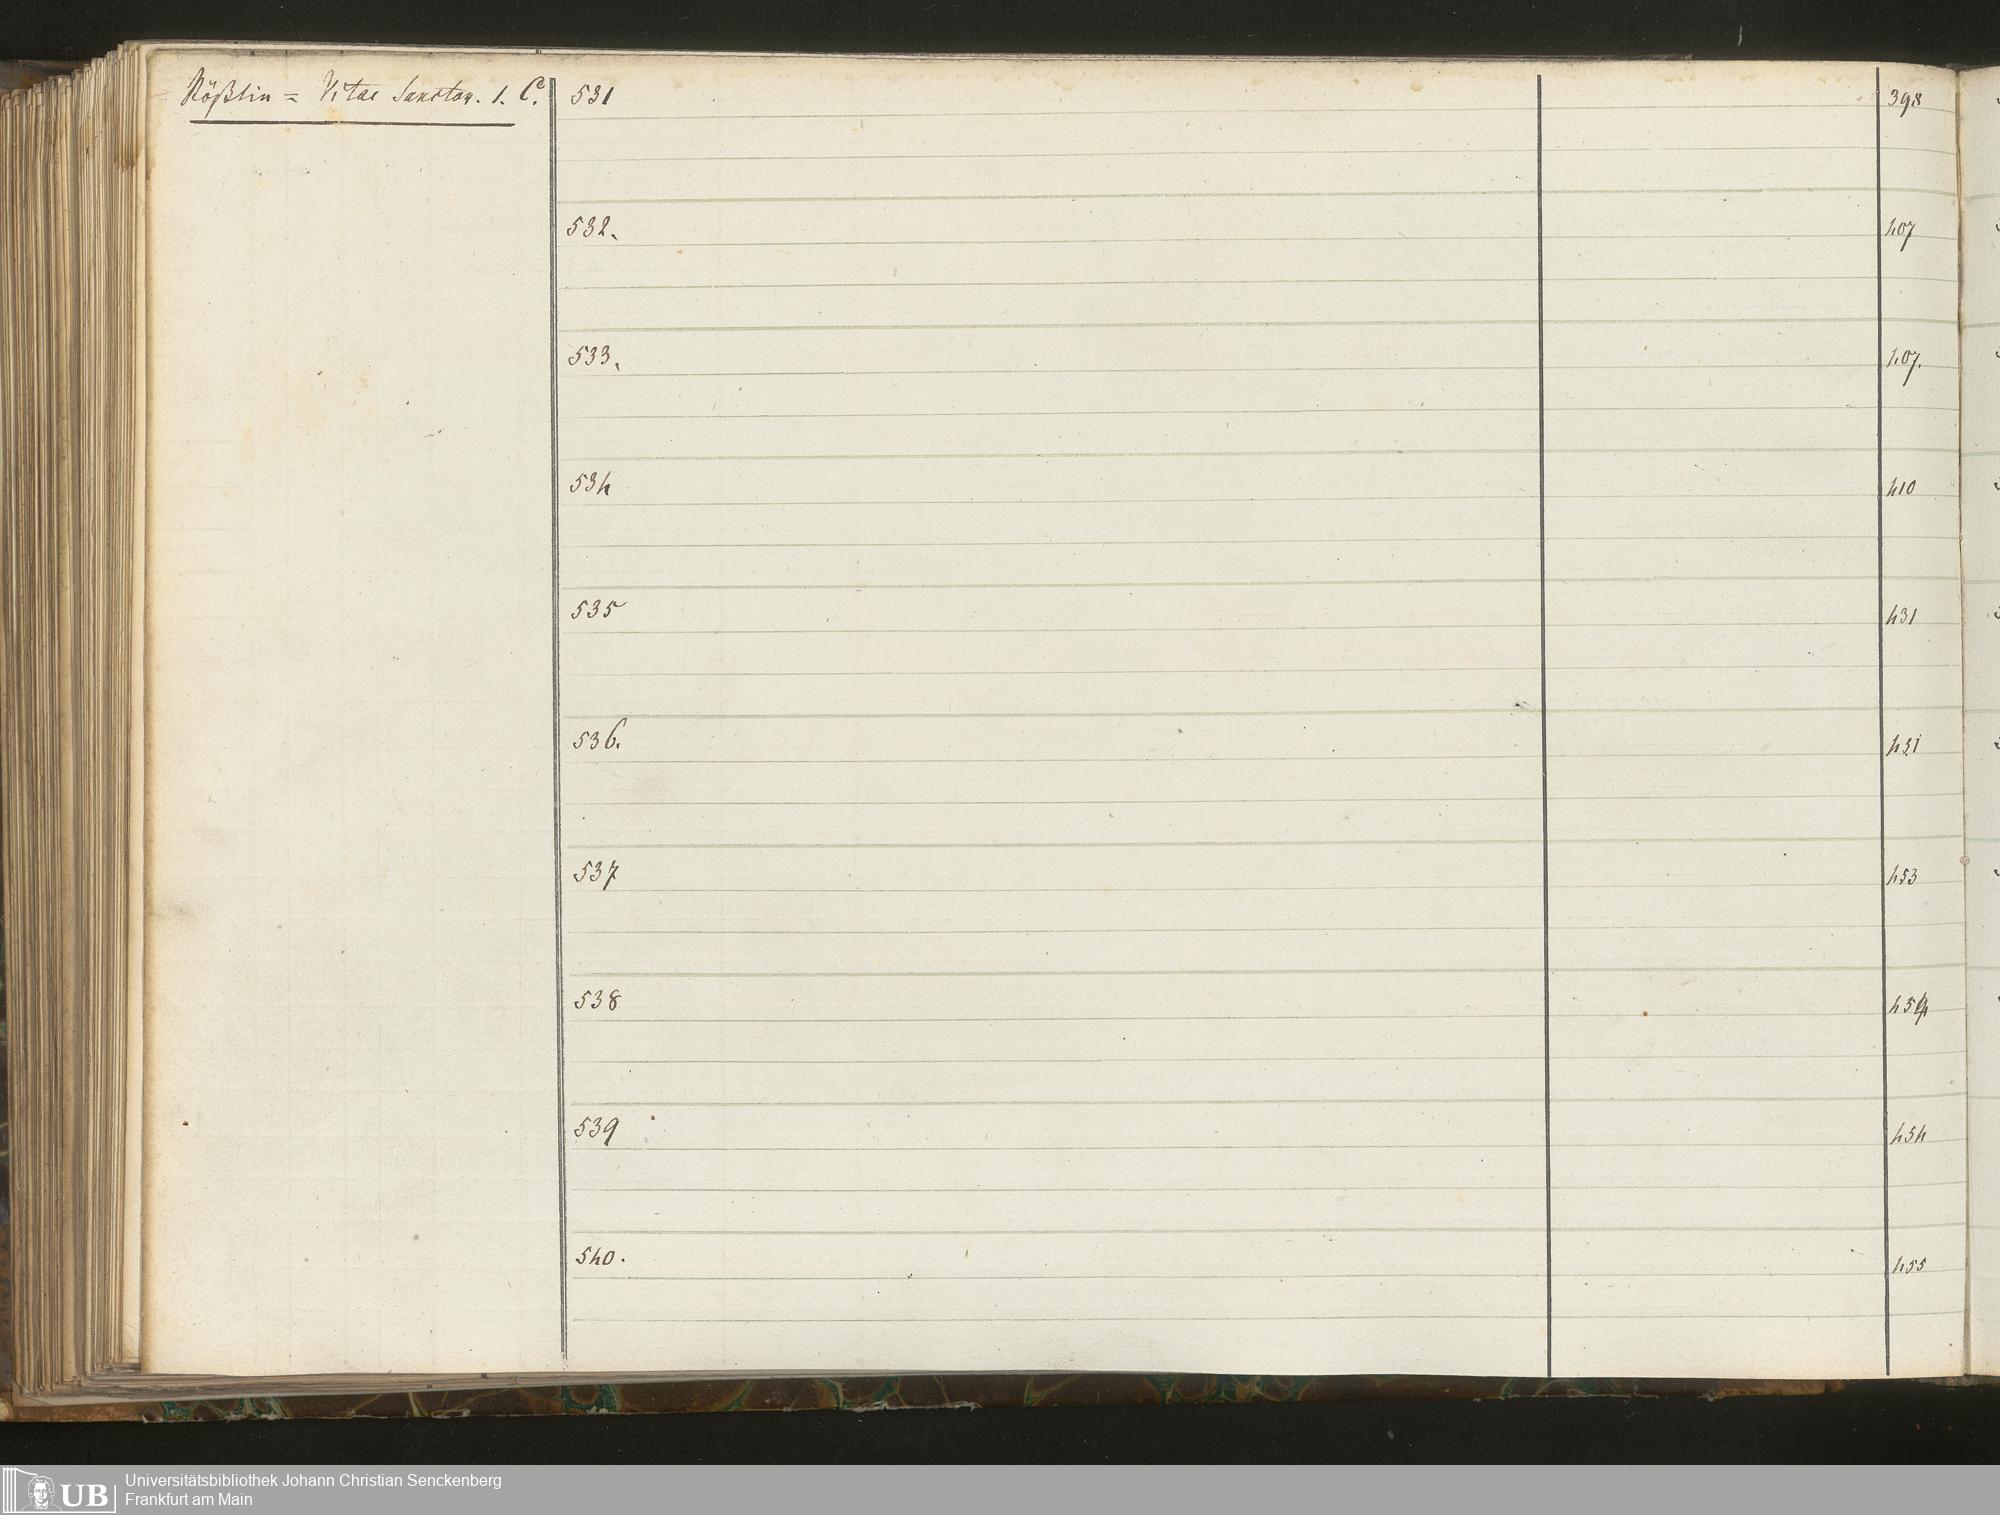 Rößlin = Vitae Sanctor. 1. C.
531 398
532. 407
533. 407.
534 410
535 431
536. 451
537 453
538
539 454
540. 455
UB
Universitätsbibliothek Johann Christian Senckenberg
Frankfurt am Main